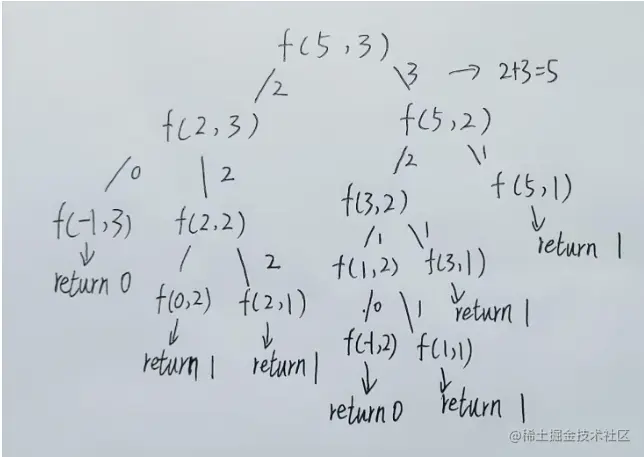 f(5,3)
2 3 → 2+3=5
f(2,3) f(5,2)
0 2 2 1
f(-1,3) f(2,2) f(3,2) f(5,1)
return 0 2 1 1 return 1
f(0,2) f(2,1) f(1,2) f(3,1)
return 1 return 1 0 1 return 1
f(-1,2) f(1,1)
return 0 return 1
@稀土掘金技术社区